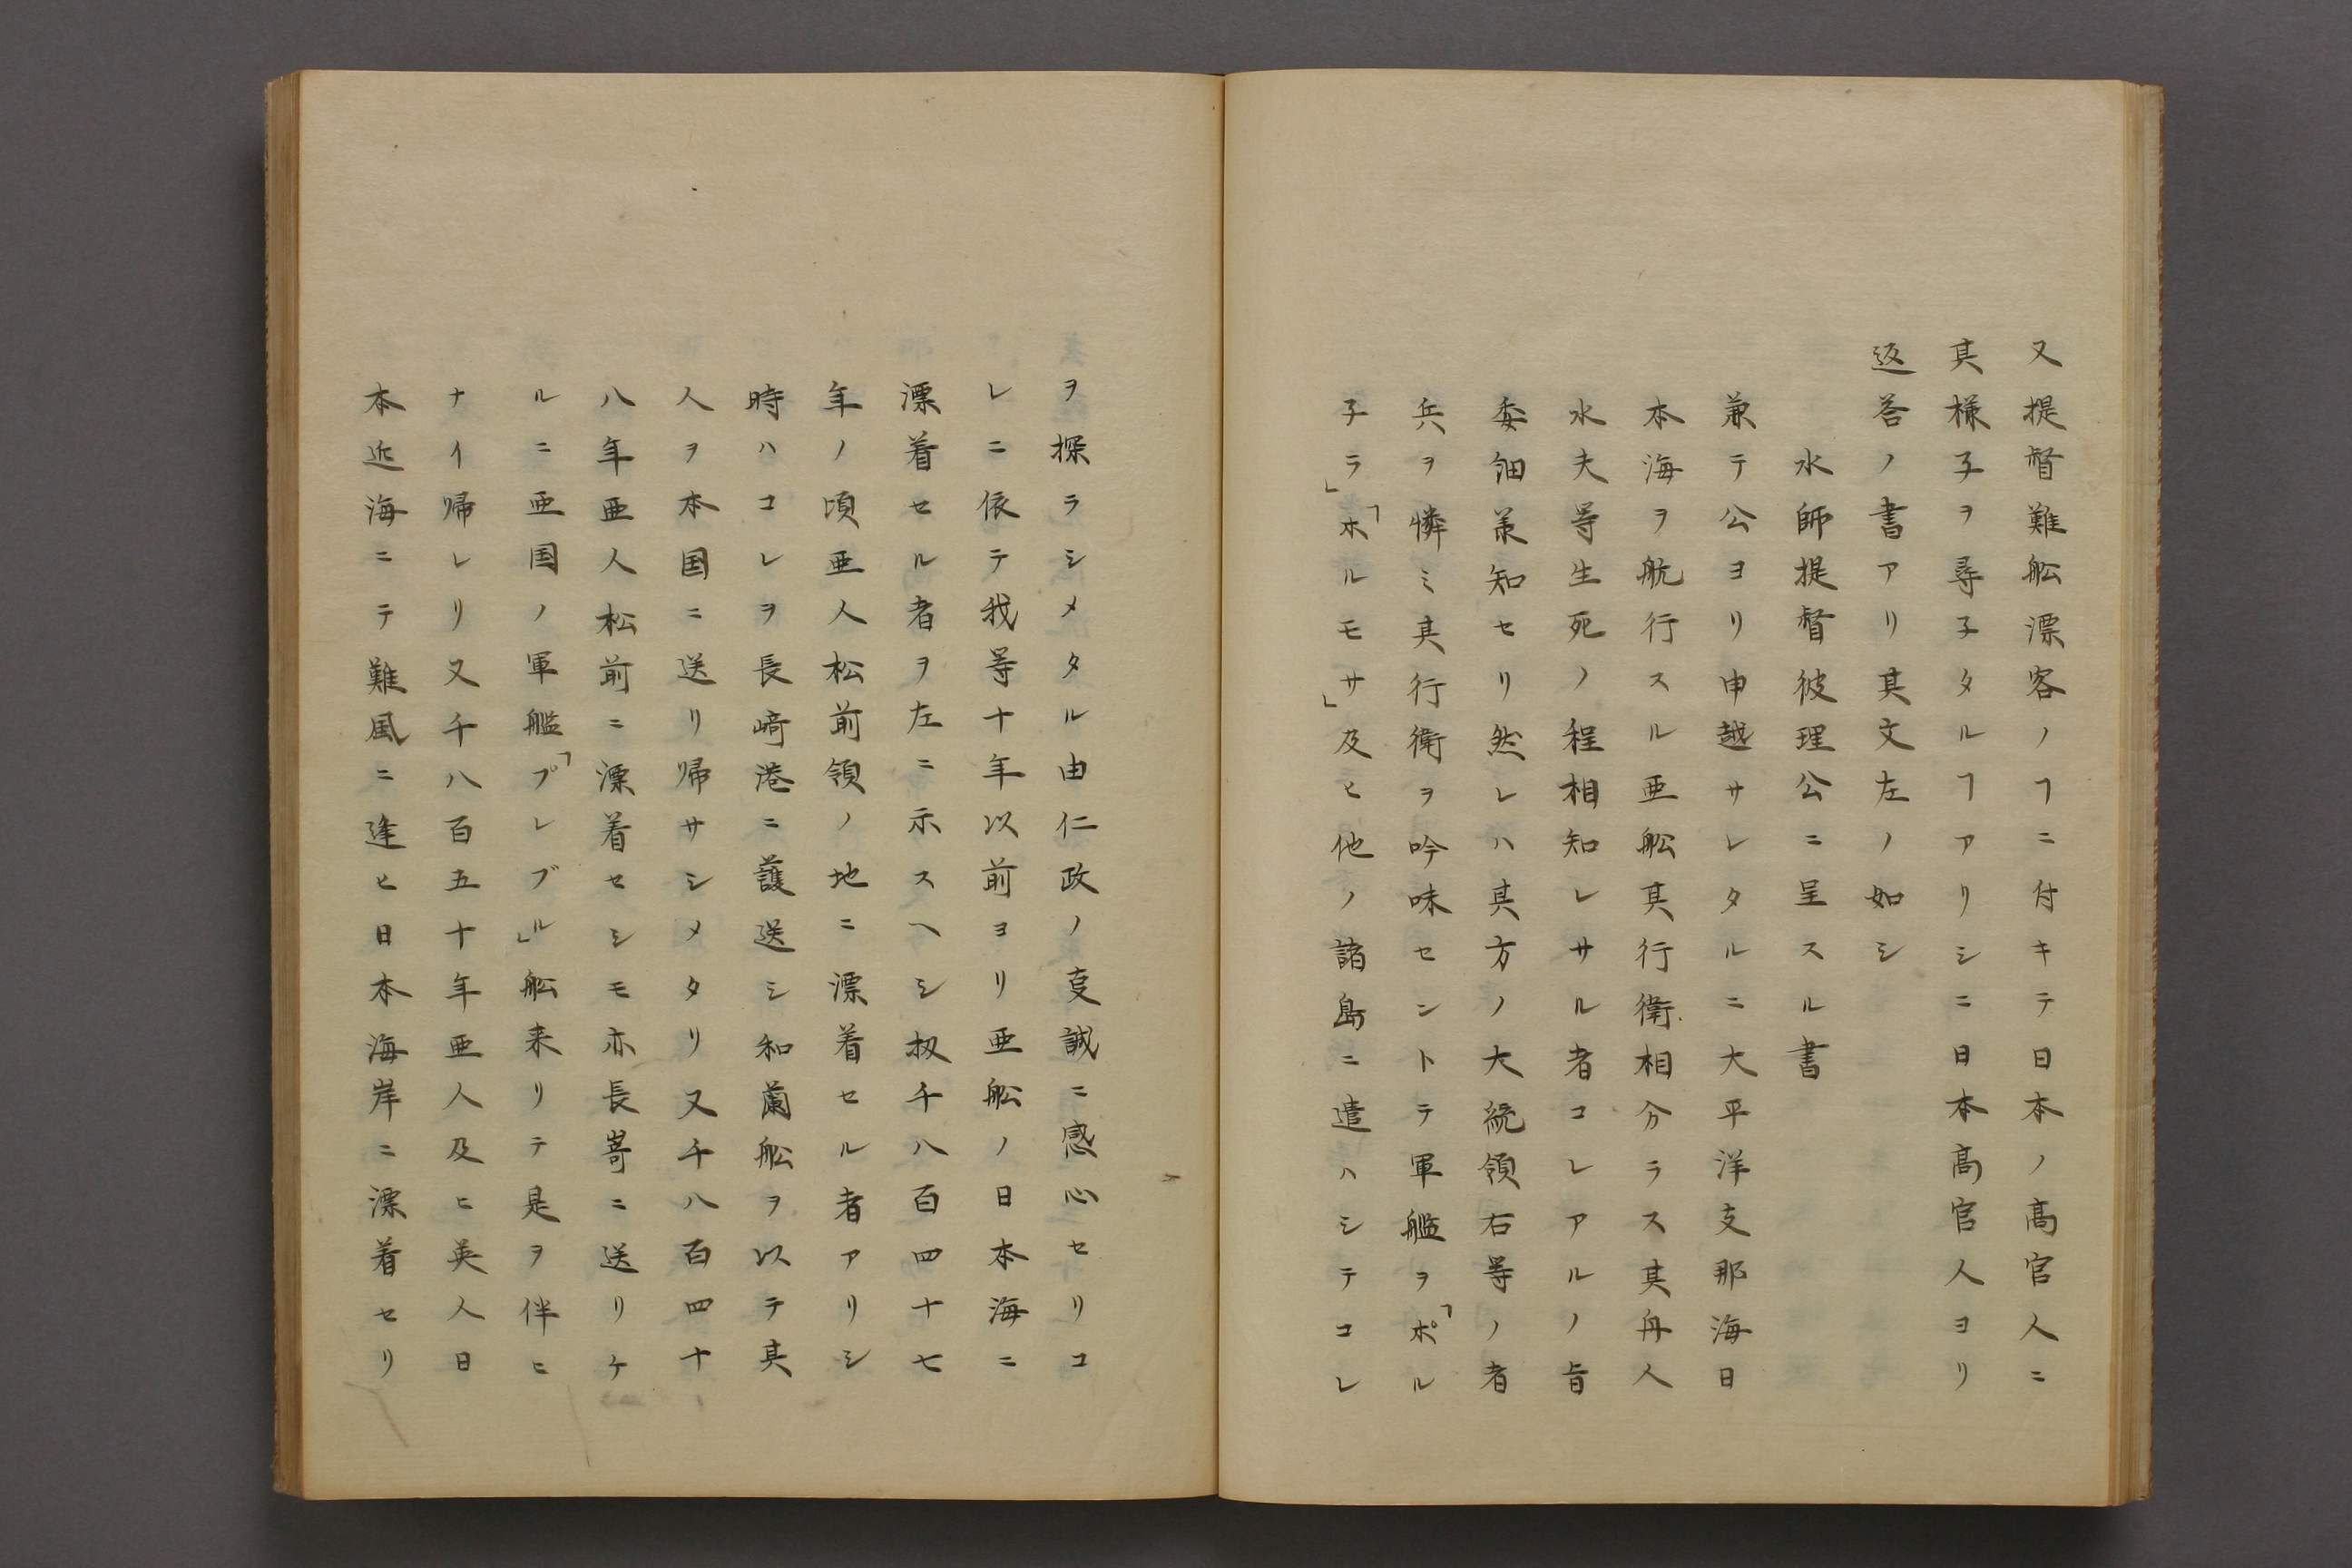 又提督難舩漂客ノヿニ付キテ日本ノ高官人ニ
其様子ヲ尋子タルヿアリシニ日本高官人ヨリ
返答ノ書アリ其文左ノ如シ
水師提督彼理公ニ呈スル書
兼テ公ヨリ申越サレタルニ大平洋支那海日
本海ヲ航行スル亜舩其行衛相分ラス其舟人
水夫等生死ノ程相知レサル者コレアルノ旨
委細羕知セリ然レハ其方ノ大統領右等ノ者
共ヲ憐ミ其行衛ヲ吟味セントテ軍艦ヲ「ボル
子ラ」「ホルモサ」及ヒ他ノ諸島ニ遣ハシテコレ
ヲ探ラシメタル由仁政ノ㕝誠ニ感心セリコ
レニ依テ我等十年以前ヨリ亜舩ノ日本海ニ
漂着セル者ヲ左ニ示スヘシ扨千八百四十七
年ノ頃亜人松前領ノ地ニ漂着セル者アリシ
時ハコレヲ長崎港ニ護送シ和蘭舩ヲ以テ其
人ヲ本国ニ送リ帰サシメタリ又千八百四十
八年亜人松前ニ漂着セシモ亦長嵜ニ送リケ
ルニ亜国ノ軍艦「プレブル」舩来リテ是ヲ伴ヒ
ナイ帰レリ又千八百五十年亜人及ヒ英人日
本近海ニテ難風ニ逢ヒ日本海岸ニ漂着セリ